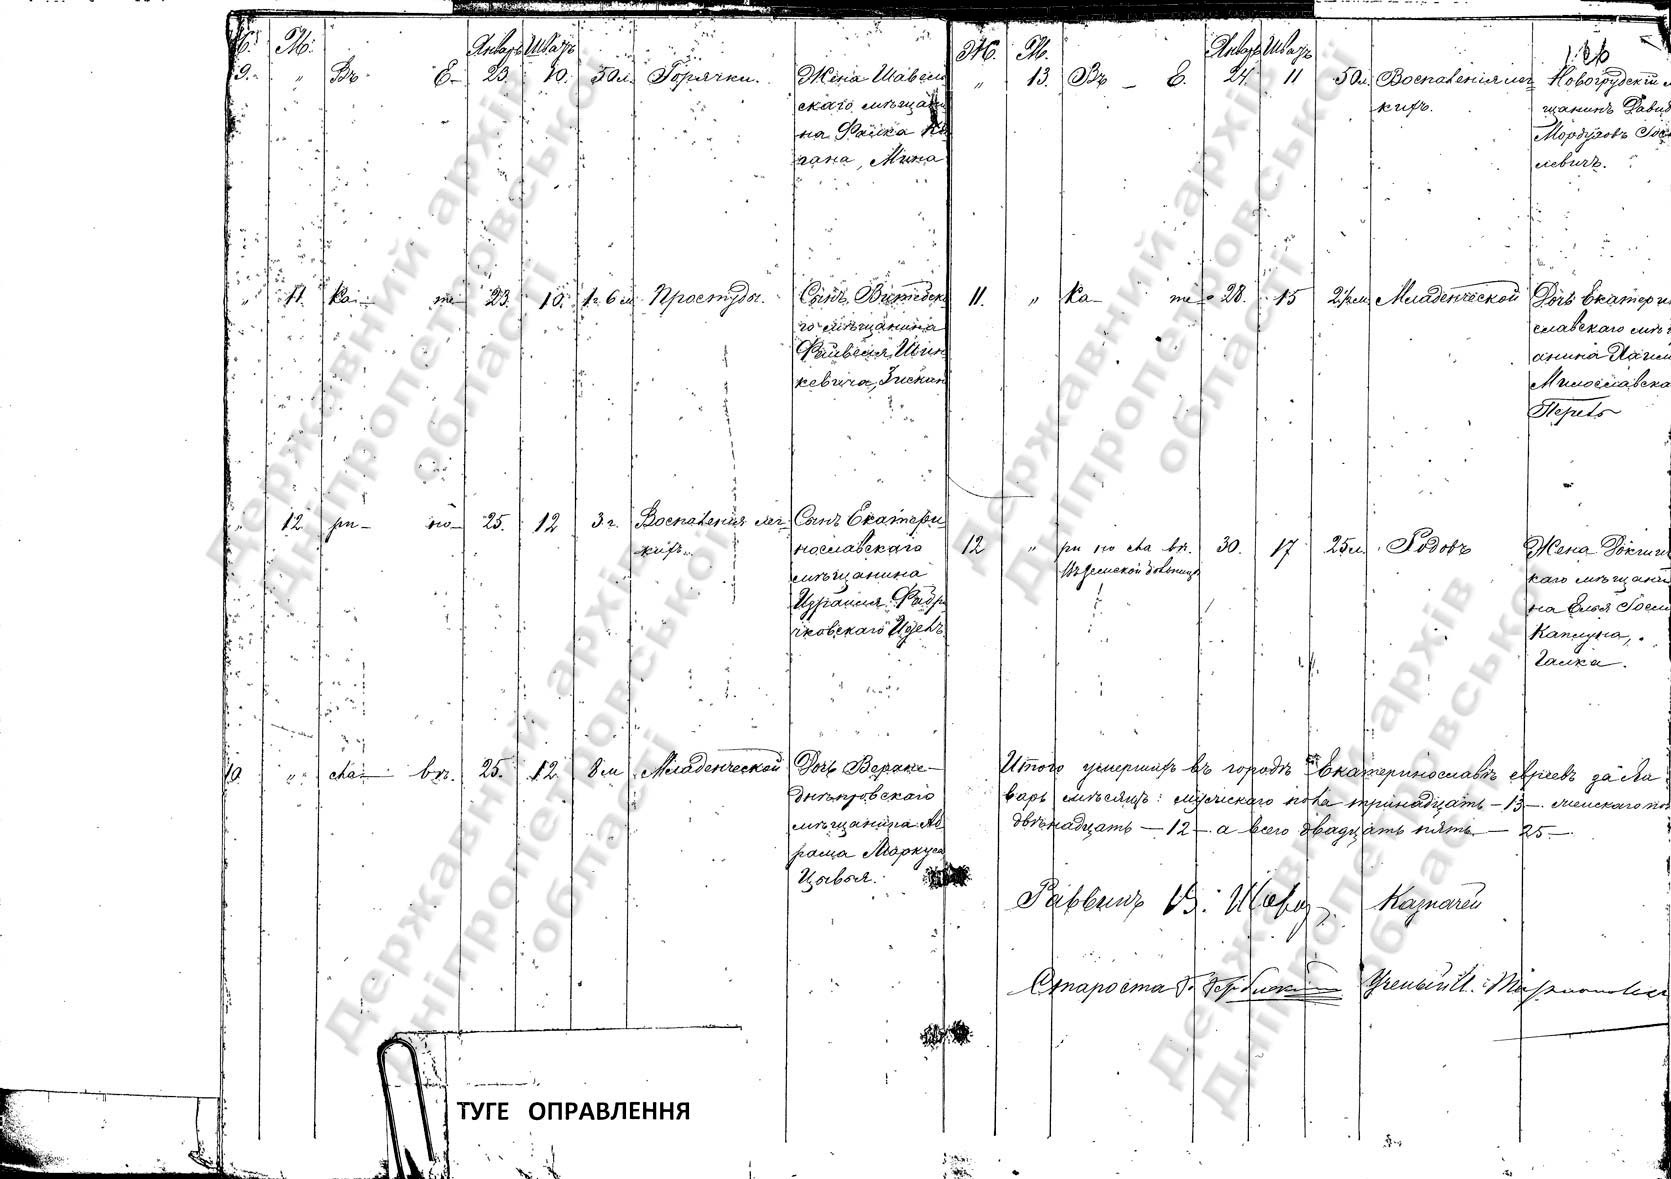 Ж. М. Январь Шватъ
9. „ Въ Е- 23 10. 50 л. Горячки. Жена Шавель
скаго мѣщани
на Файка Ко
гана, Мина
„ 11. Ка- те- 23. 10. 1 г. 6 м Простуды. Сынъ Витебск
го мѣщанина
Файвеля Шин
кевича, Зискин
„ 12 ри- но- 25. 12 3 г. Воспаленія лег-
кихъ. Сынъ Екатери
нославскаго
мѣщанина
Израиля Фабри
чковскаго
10 „ сла- вѣ. 25. 12 8 м Младенческой Дочь Верхне-
днѣпровскаго
мѣщанина Аб
рама Маркуса
Цывья.
Ж. М. Январь Шватъ
„ 13. Въ - Е. 24. 11 50 л. Воспаленія лег-
кихъ. Новогрудскій м
щанинъ Давид
Мордуховъ Гос
левичъ.
11. „ Ка- те- 28. 15 2½ м Младенческой Дочь Екатери
славскаго мѣщ
анина Хаим
Милославска
Перель
12 „ ри но сла вѣ. 30. 17 25 л. Родовъ Жена
Въ земской больницѣ
каго мѣщани
на Елья
Каплуна,
Галка.
Итого умершихъ въ городѣ Екатеринославѣ евреевъ за Ян
варь мѣсяцъ: мужскаго пола тринадцать - 13 - женскаго пол
двѣнадцать - 12 - а всего двадцать пять - 25 -
Раввинъ Казначей
Староста Ученый
ТУГЕ ОПРАВЛЕННЯ
Державний архів
Дніпропетровської
області